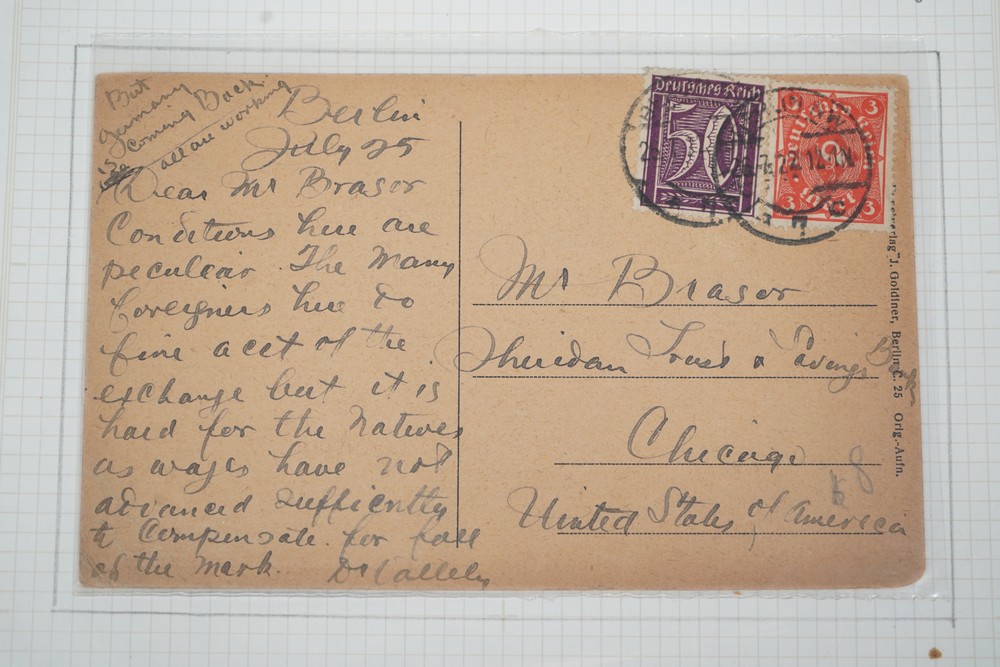 But
Germany
is coming Back.
all are working
Berlin
July 25
Dear Mr Brasor
Conditions here are
peculiar. The many
foreigners here do
fine acct of the
exchange but it is
hard for the Natives
as wages have not
advanced sufficently
to compensate for fall
of the mark.
Deutsches Reich
50
Deutsches Reich
3
3
3
3
22 12
Mr Brasor
Sheridan Trust & Savings Bank
Chicago
United States of America
8
J. Goldiner, Berlin C. 25 Orig.-Aufn.